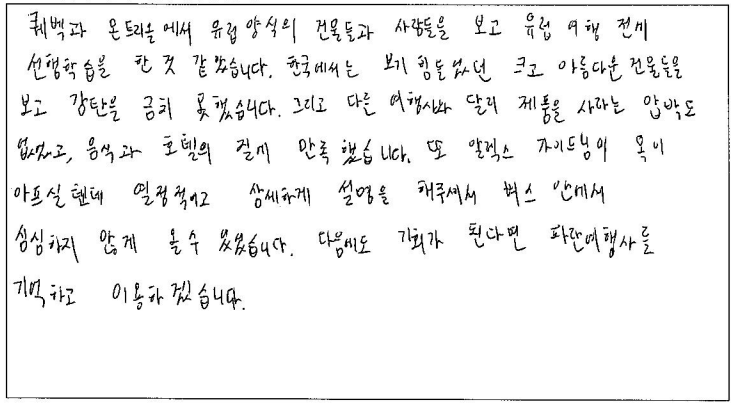 퀘백과 몬트리올에서 유럽양식의 건물들과 사람들을 보고 유럽 여행 전에
선행학습을 한 것 같았습니다. 한국에서는 보기 힘들었던 크고 아름다운 건물들을
보고 감탄을 금치 못했습니다. 그리고 다른 여행사와 달리 제품을 사라는 압박도
없었고, 음식과 호텔의 질에 만족했습니다. 또 알렉스 가이드님이 목이
아프실텐데 열정적이고 상세하게 설명을 해주셔서 버스 안에서
심심하지 않게 올 수 있었습니다. 다음에도 기회가 된다면 파란여행사를
기억하고 이용하겠습니다.